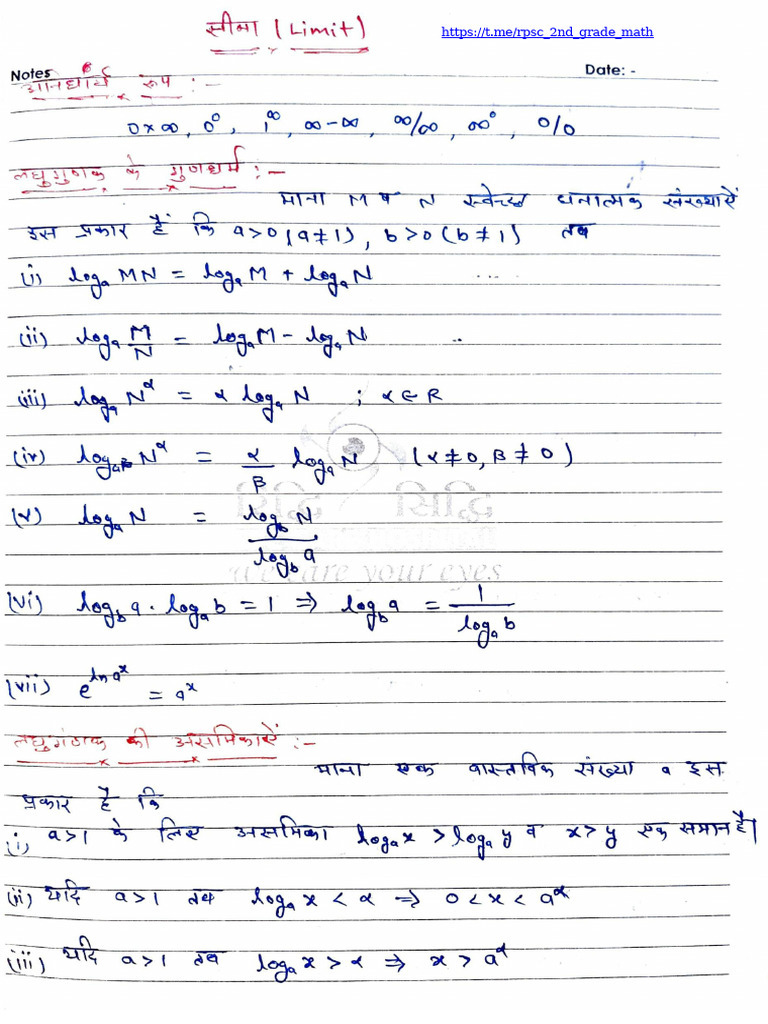 सीमा (Limit)
https://t.me/rpsc_2nd_grade_math
Notes
Date: -
अनिर्धार्य रूप :-
0×∞, 0⁰, 1^∞, ∞-∞, ∞/∞, ∞⁰, 0/0
लघुगुणक के गुणधर्म :-
माना M व N स्वेच्छ धनात्मक संख्याऐं
इस प्रकार हैं कि a>0 (a≠1), b>0 (b≠1) तब
(i) logₐ MN = logₐ M + logₐ N
(ii) logₐ M/N = logₐ M - logₐ N
(iii) logₐ N^α = α logₐ N ; α ∈ R
(iv) log_{a^β} N^α = α/β logₐ N (α≠0, β≠0)
(v) logₐ N = log_b N / log_b a
रिद्धि सिद्धि
we care your eyes
(vi) log_b a · logₐ b = 1 ⇒ log_b a = 1/logₐ b
(vii) e^{ln a^x} = a^x
लघुगणक की असमिकाऐं :-
माना एक वास्तविक संख्या a इस
प्रकार है कि
(i) a>1 के लिए असमिका logₐ x > logₐ y व x>y एक समान है।
(ii) यदि a>1 तब logₐ x < α ⇒ 0 < x < a^α
(iii) यदि a>1 तब logₐ x > α ⇒ x > a^α